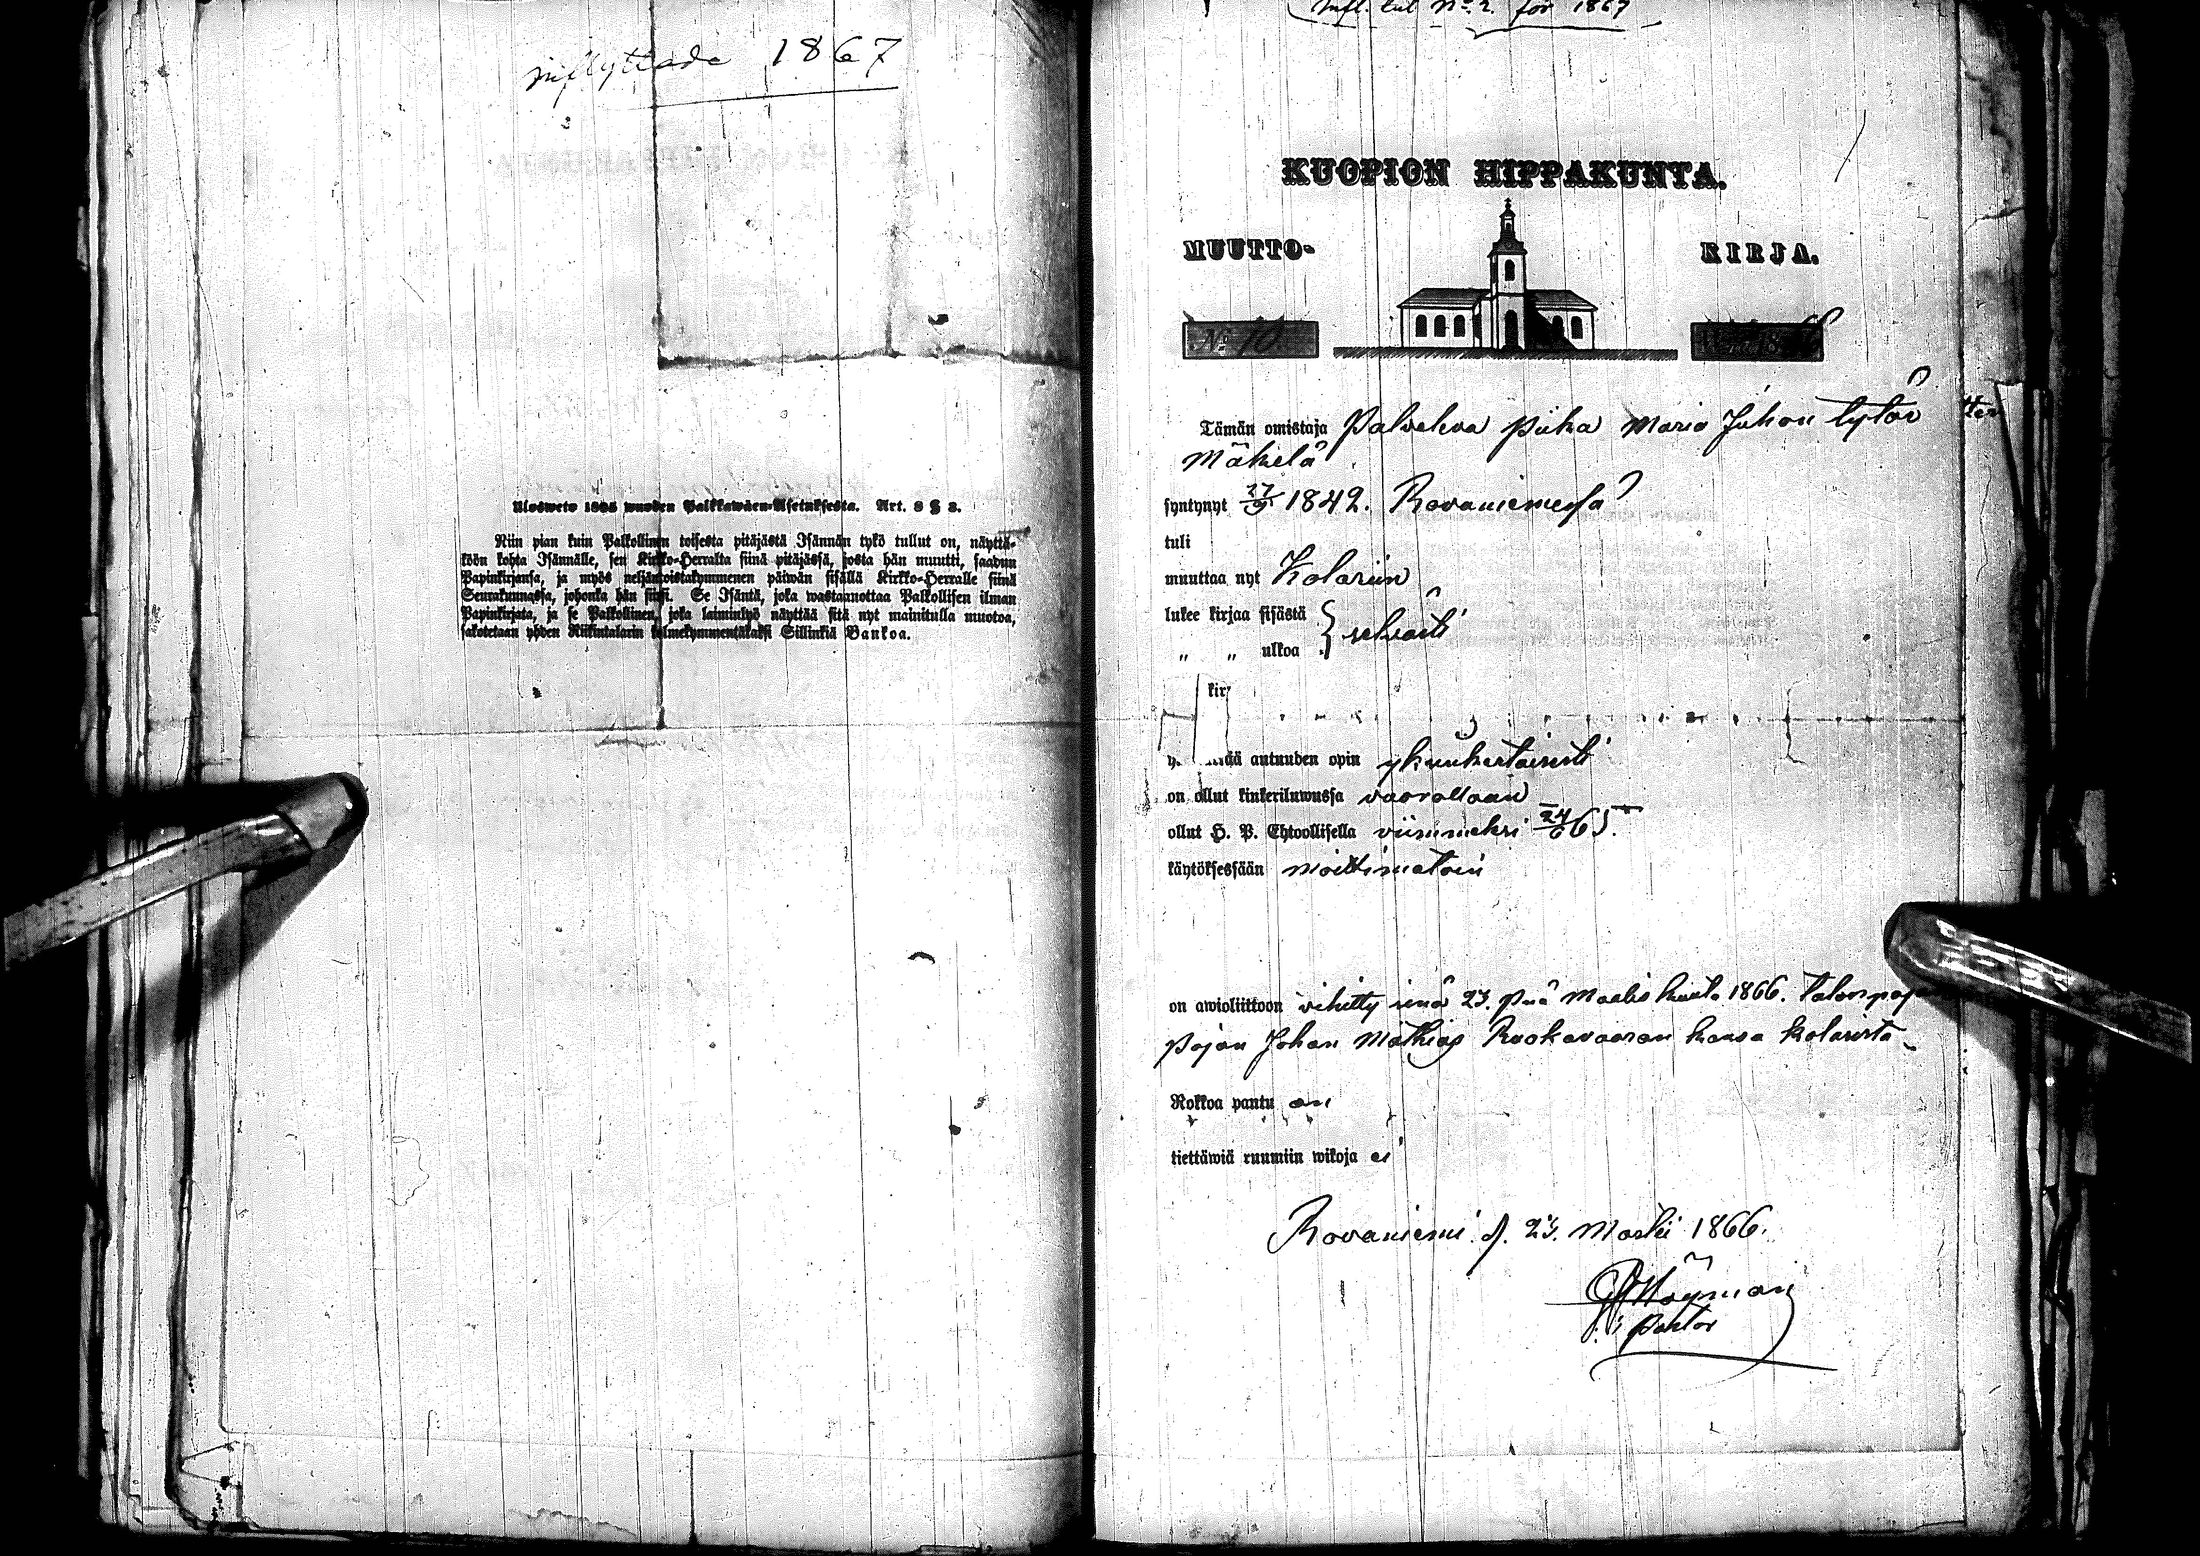 inflyttade 1867
Ulosweto 1805 wuoden Palkkawäen-Asetuksesta. Art. 8 § 3.
Niin pian kuin Palkollinen toisesta pitäjästä Isännän tykö tullut on, näyttä-
köön kohta Isännälle, sen Kirkko-Herralta siinä pitäjässä, josta hän muutti, saadun
Papinkirjansa, ja myös neljäntoistakymmenen päiwän sisällä Kirkko-Herralle siinä
Seurakunnassa, johonka hän siirsi. Se Isäntä, joka wastaanottaa Palkollisen ilman
Papinkirjata, ja se Palkollinen, joka laiminlyö näyttää sitä nyt mainitulla muotoa,
sakotetaan yhden Riikintalarin kolmekymmentäkaksi Sillinkiä Bankoa.
Infl. till No. 2. för 1867
KUOPION HIPPAKUNTA.
MUUTTO- KIRJA.
No 10 18 66
Tämän omistaja Palveleva piika Maria Juhon tytär
Mäkelä
syntynyt 27/9 1842. Rovaniemessä
tuli
muuttaa nyt Kolariin
lukee kirjaa sisästä } selvästi
„ „ ulkoa
kir
autuuden opin yksinkertaisesti
on ollut kinkeriluwussa vuorollaan
ollut H. P. Ehtoollisella viimmeksi 24/6 65.
käytöksessään moittimatoin
on awioliittoon vihitty sinä 23. p:nä Maalis kuuta 1866. talonpojan
pojan Johan Mathias Ruokavaaran kansa Kolarista
Rokkoa pantu on
tiettäwiä ruumiin wikoja ei
Rovaniemi d. 23. Martii 1866.
Höyman
Pastor